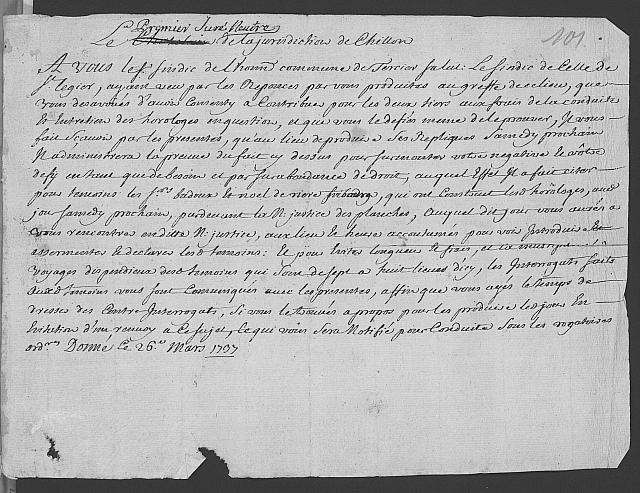 Premier Juré Neutre
101.
Le Chatelain de la jurisdiction de Chillon
A Vous le Sr. sindic de l'honn. commune de salut. Le sindic de Celle de
St. legier, ayant veu par les Reponces par vous produittes au greffe de ce lieu, que
vous desavoués d'avoir Consenty à Contribuer pour les deux tiers aux frais de la conduitte
et lentretien des horologes en question, et que vous le defiés meme de le prouver, Il vous
fait scavoir par les presentes, qu'au lieu de produire ses Repliques Samedy prochain
Il administrera la preuve du fait cy dessus pour surmonter votre negative et vôtre
defy en tant que de besoin et par surabondance de droit, auquel Effet Il a fait citer
pour temoins les Srs. badoux et noel de riere fribourg, qui ont Construit les dts horloges, au dt
jour Samedy prochain, par devant la N. justice des planches, Auquel dit jour vous aurés à
vous rencontrer en ditte N. justice, au lieu et heure accoutumés pour voir Introduire
assermenter et declarer les dts temoins: Et pour Eviter longueur et frais, et la
voyages dispendieux des dts temoins qui sont de sept à huit lieues d'icy, les Interrogats faits
aux dts temoins vous sont Communiqués avec les presentes, affin que vous ayés le temps de
dresser des Contre Interrogats, Si vous le trouvés a propos pour les produire les jours En
Evitation d'un renvoy à ce sujet, Ce qui vous sera Notifié pour Conduitte Sous les
ordres Donné Ce 26e. Mars 1737